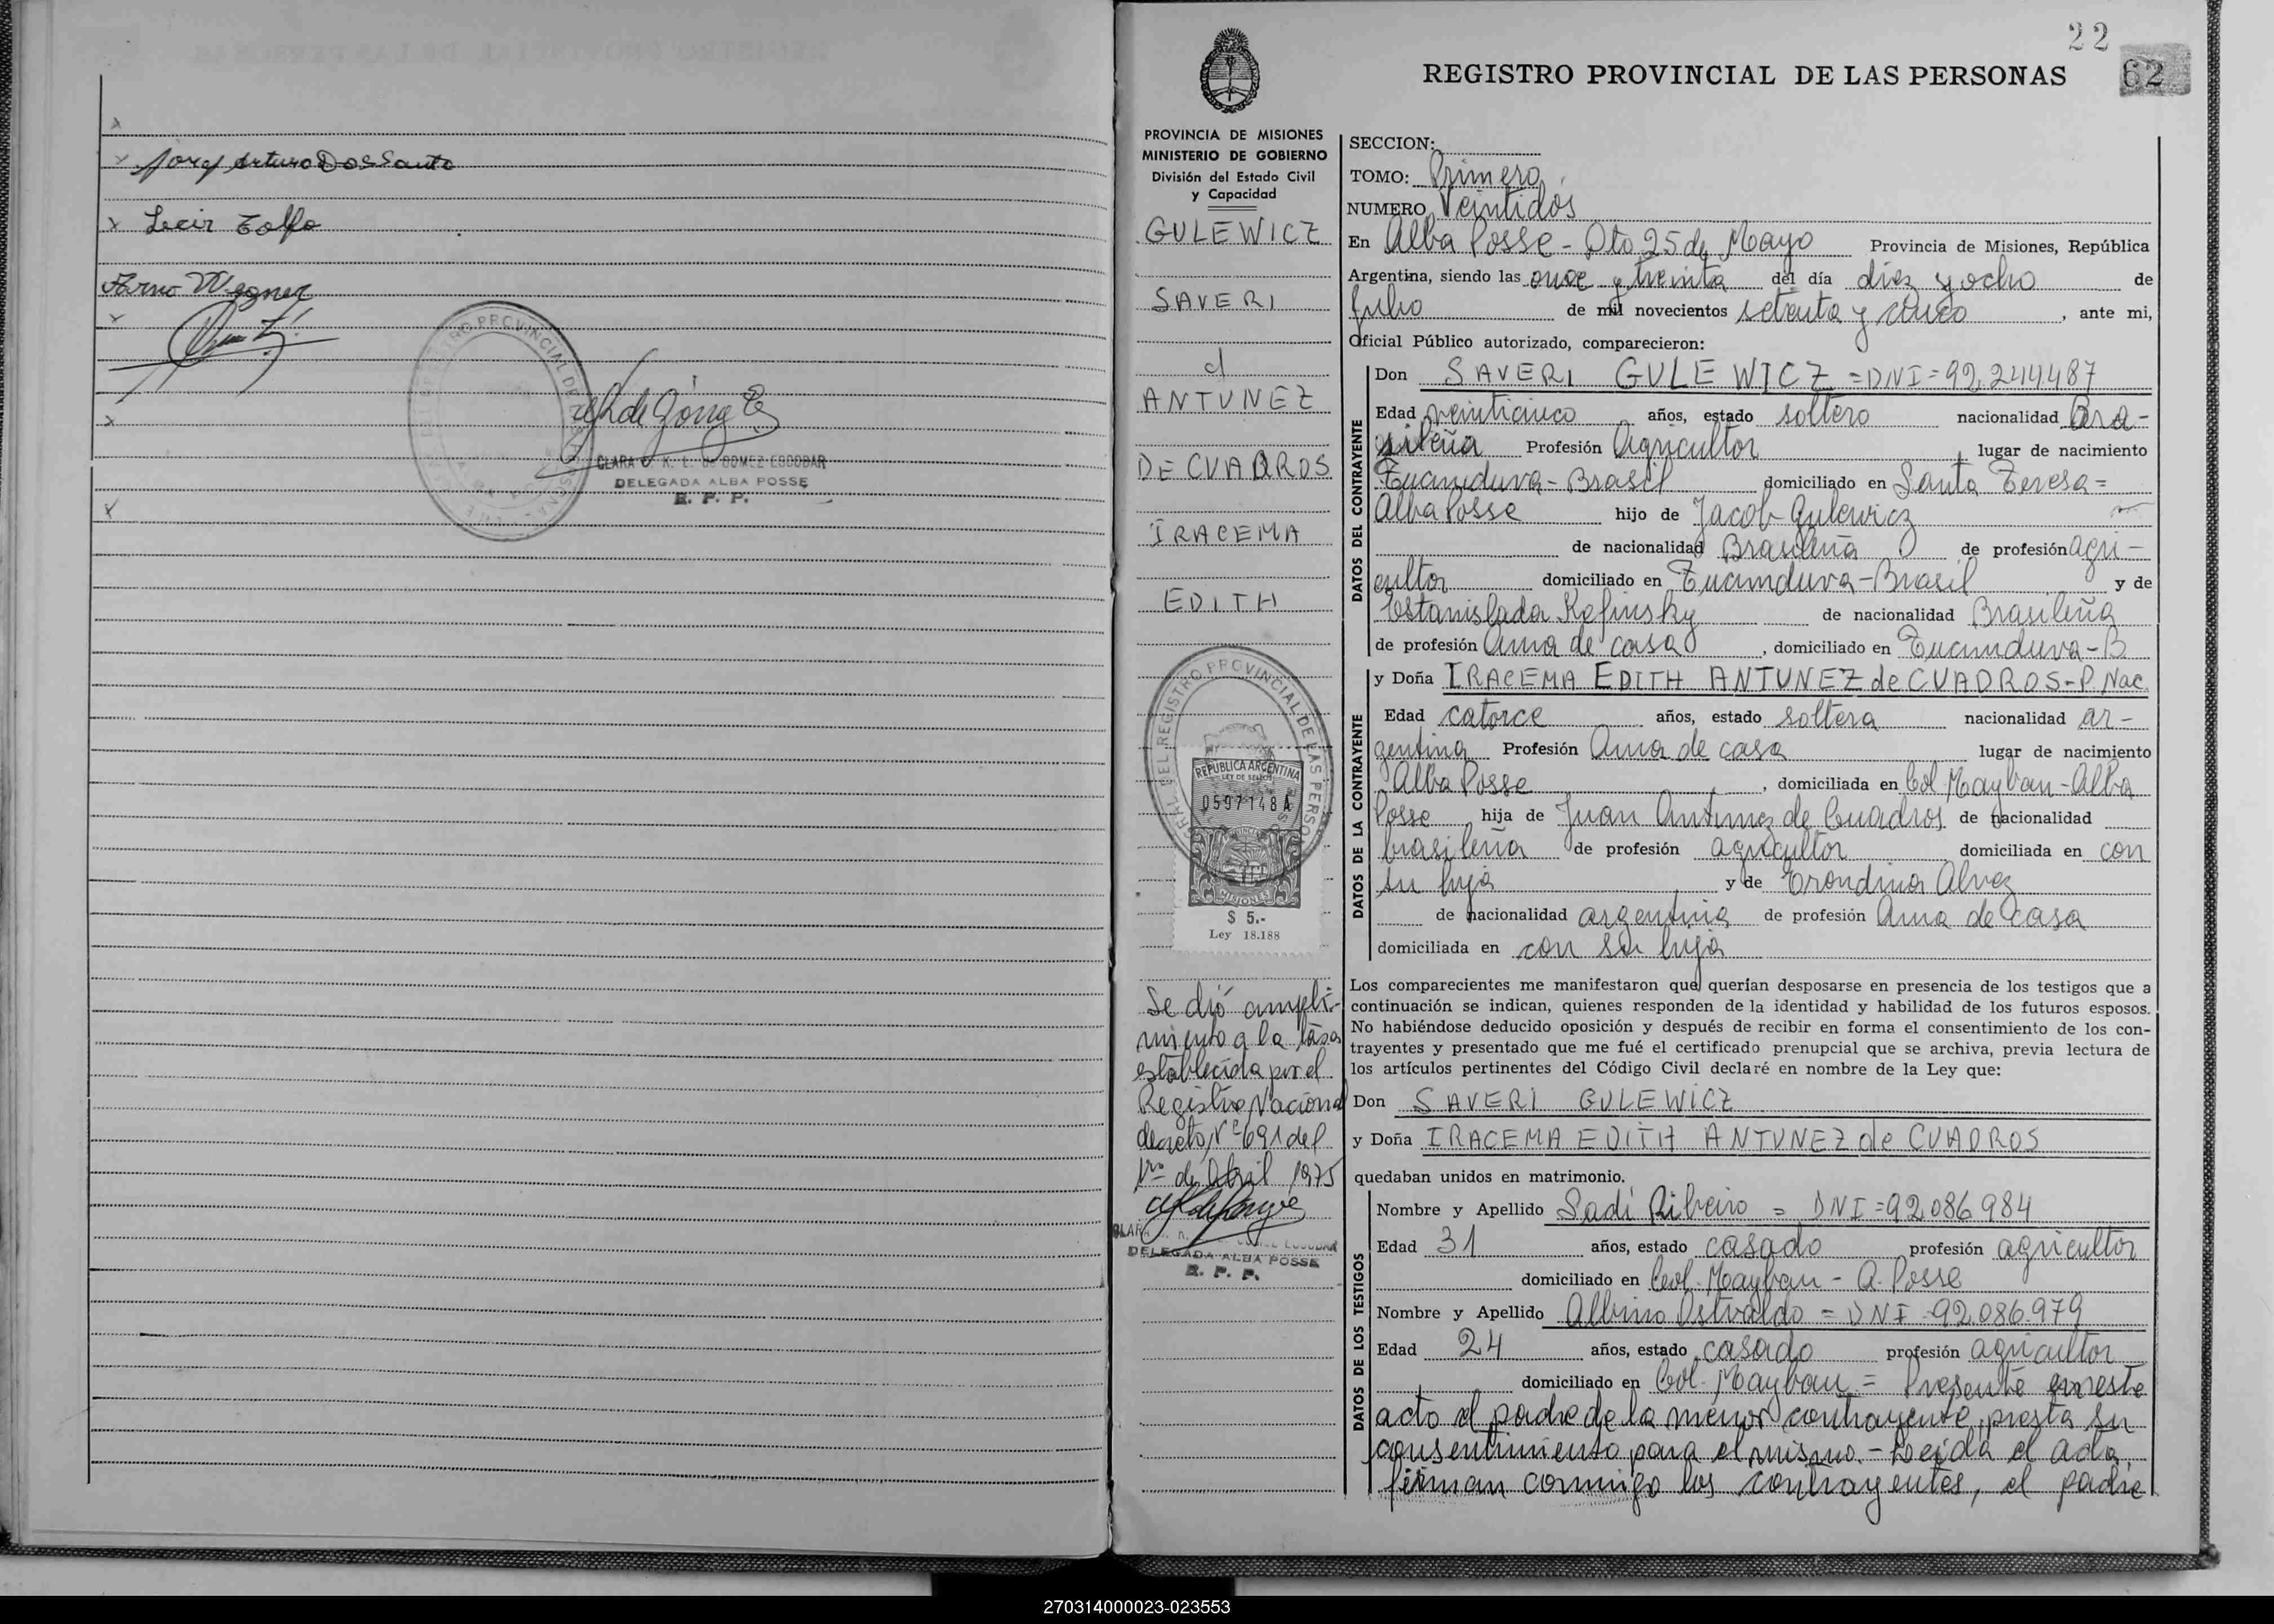 Jorg Arturo Dos Santo
Lecir Tolfo
Arno Wegner
CLARA K. L. de GOMEZ ESCOBAR
DELEGADA ALBA POSSE
R. P. P.
22
62
REGISTRO PROVINCIAL DE LAS PERSONAS
PROVINCIA DE MISIONES
MINISTERIO DE GOBIERNO
División del Estado Civil
y Capacidad
GULEWICZ
SAVERI
c/
ANTUNEZ
DE CUADROS
IRACEMA
EDITH
REPUBLICA ARGENTINA
LEY DE SELLOS
0597148A
MISIONES
$ 5.-
Ley 18.188
Se dió cumpli-
miento a la tasa
establecida por el
Registro Nacional
decreto Nº 691 del
1ro de Abril 1975
DELEGADA ALBA POSSE
R. P. P.
SECCION:
TOMO: Primero
NUMERO Veintidós
En Alba Posse - Dto 25 de Mayo Provincia de Misiones, República
Argentina, siendo las once y treinta del día diez y ocho de
Julio de mil novecientos setenta y cinco, ante mi,
Oficial Público autorizado, comparecieron:
DATOS DEL CONTRAYENTE
Don SAVERI GULEWICZ =DNI=92.244.487
Edad veinticinco años, estado soltero nacionalidad Bra-
sileña Profesión Agricultor lugar de nacimiento
Tucunduva - Brasil domiciliado en Santa Teresa =
Alba Posse hijo de Jacob Gulewicz
de nacionalidad Brasileña de profesión agri-
cultor domiciliado en Tucunduva - Brasil y de
Estanislada Kofinsky de nacionalidad Brasileña
de profesión Ama de casa, domiciliado en Tucunduva - B
DATOS DE LA CONTRAYENTE
y Doña IRACEMA EDITH ANTUNEZ de CUADROS - P. Nac.
Edad catorce años, estado soltera nacionalidad ar-
gentina Profesión Ama de casa lugar de nacimiento
Alba Posse, domiciliada en Col Mayban - Alba
Posse hija de Juan Antunez de Cuadros de nacionalidad
brasileña de profesión agricultor domiciliada en con
su hija y de Erondina Alvez
de nacionalidad argentina de profesión Ama de casa
domiciliada en con su hija
Los comparecientes me manifestaron que querían desposarse en presencia de los testigos que a
continuación se indican, quienes responden de la identidad y habilidad de los futuros esposos.
No habiéndose deducido oposición y después de recibir en forma el consentimiento de los con-
trayentes y presentado que me fué el certificado prenupcial que se archiva, previa lectura de
los artículos pertinentes del Código Civil declaré en nombre de la Ley que:
Don SAVERI GULEWICZ
y Doña IRACEMA EDITH ANTUNEZ de CUADROS
quedaban unidos en matrimonio.
DATOS DE LOS TESTIGOS
Nombre y Apellido Sadi Ribeiro = DNI=92.086.984
Edad 31 años, estado casado profesión agricultor
domiciliado en Col. Mayban - A. Posse
Nombre y Apellido Albino Ostvaldo = DNI 92.086.979
Edad 24 años, estado casado profesión agricultor
domiciliado en Col. Mayban = Presente en este
acto el padre de la menor contrayente, presta su
consentimiento para el mismo.- Leida el acta,
firman conmigo los contrayentes, el padre
270314000023-023553